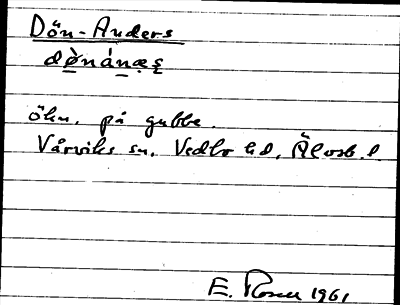 Dön-Anders
dø̀nánæş
ökn. på gubbe.
Vårviks sn. Vedbo hd, Älvsb. l
E. Rosen 1961